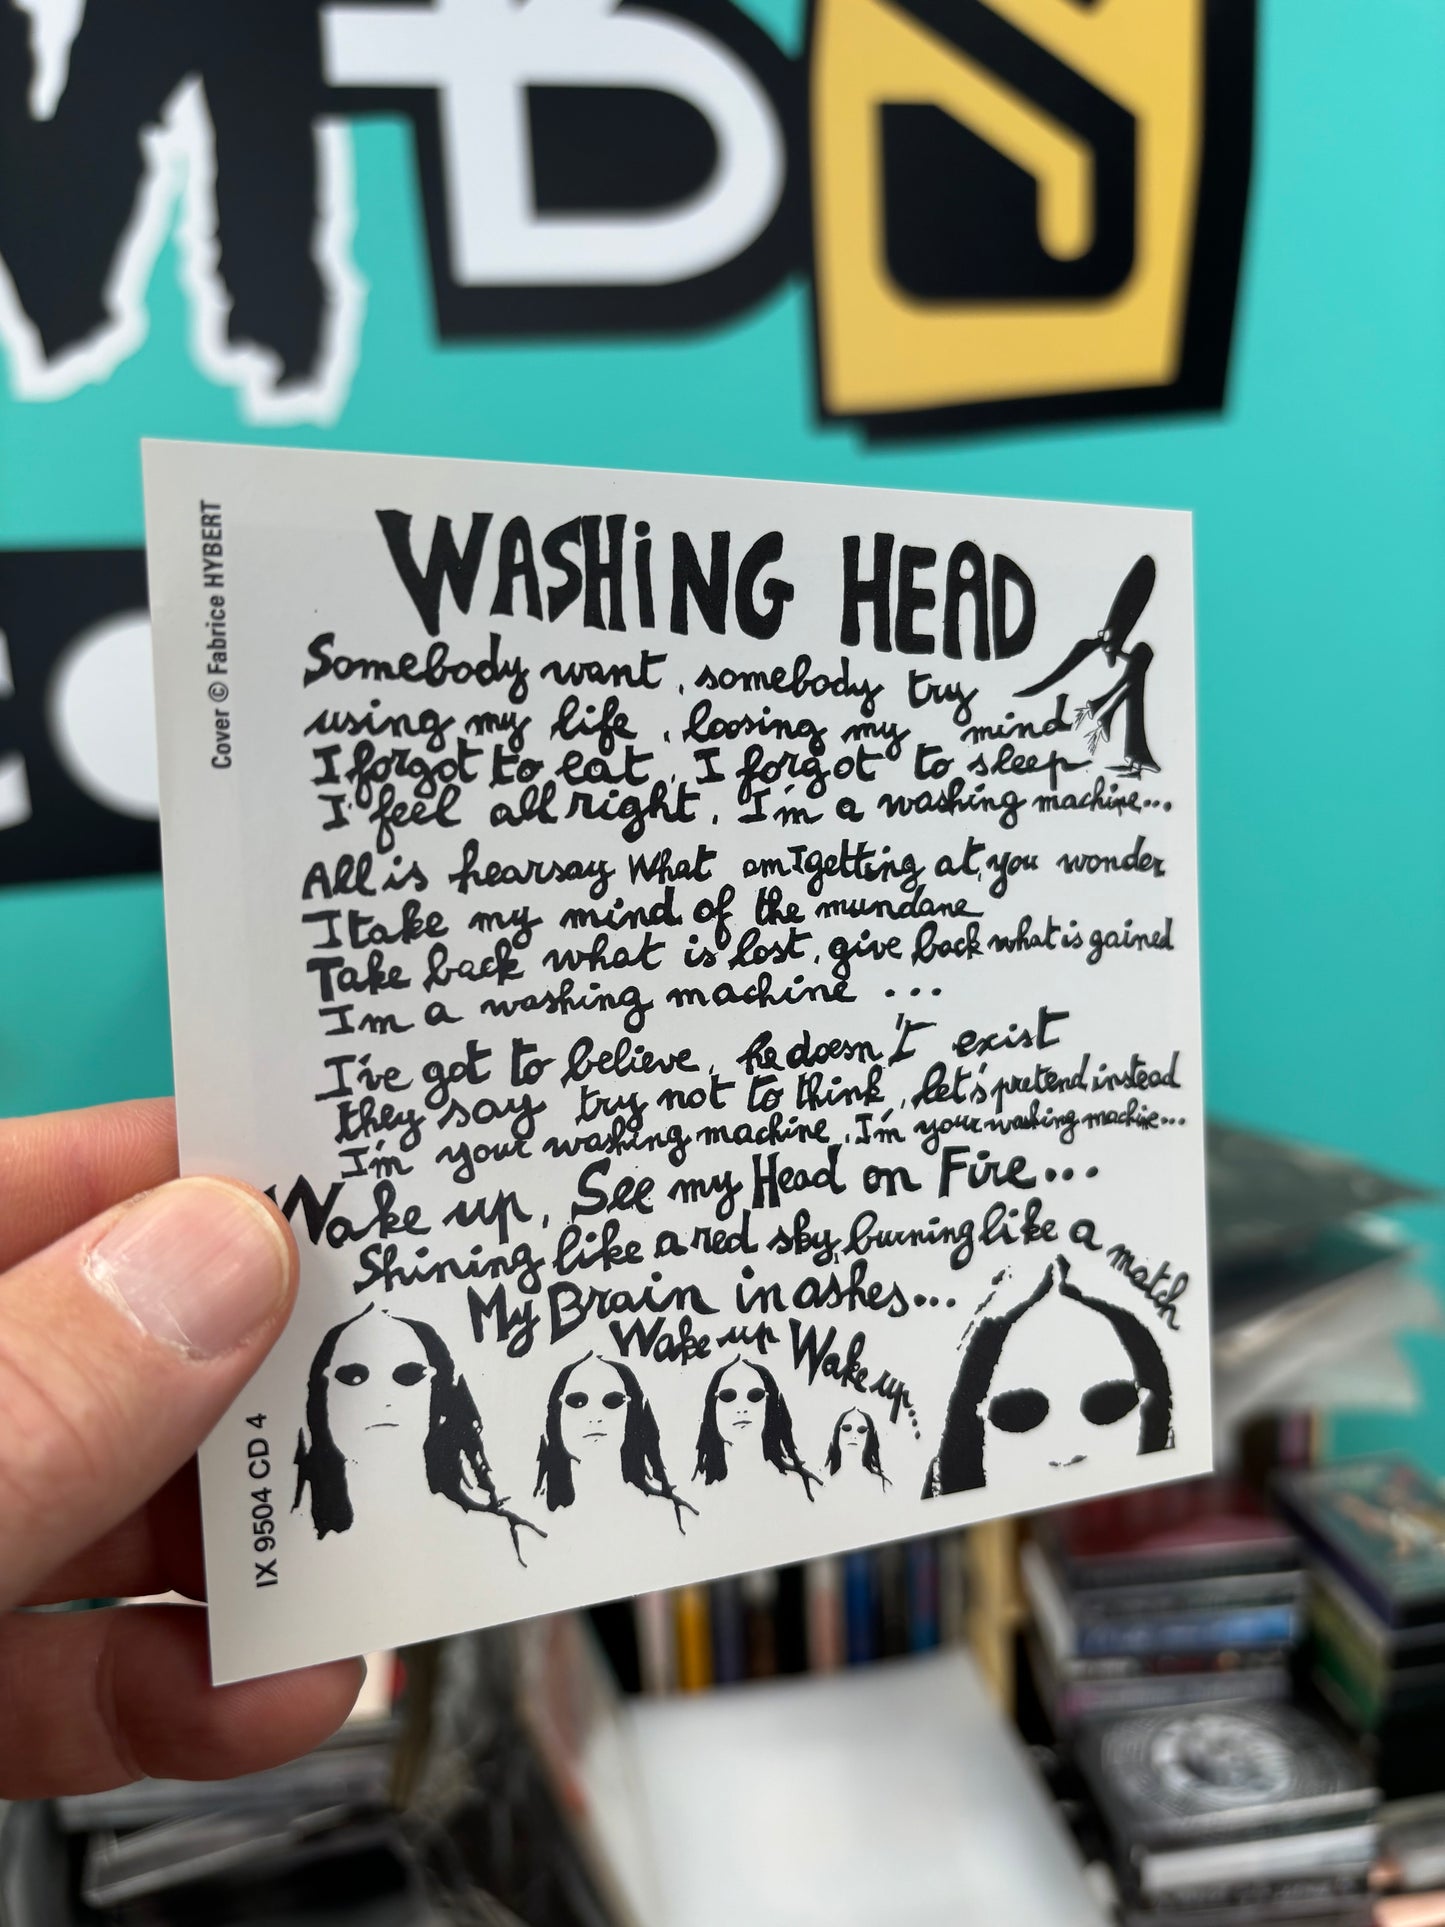 Cover © Fabrice HYBERT
WASHiNG HEAD
Somebody want, somebody try
using my life, loosing my mind
I forgot to eat, I forgot to sleep
I feel all right, I'm a washing machine...
All is hearsay What am I getting at, you wonder
I take my mind of the mundane
Take back what is lost, give back what is gained
I'm a washing machine ...
I've got to believe, he doesn't exist
they say try not to think, let's pretend instead
I'm your washing machine, I'm your washing machine...
Wake up, See my Head on Fire...
Shining like a red sky, burning like a match
My Brain in ashes...
Wake up Wake up...
IX 9504 CD 4